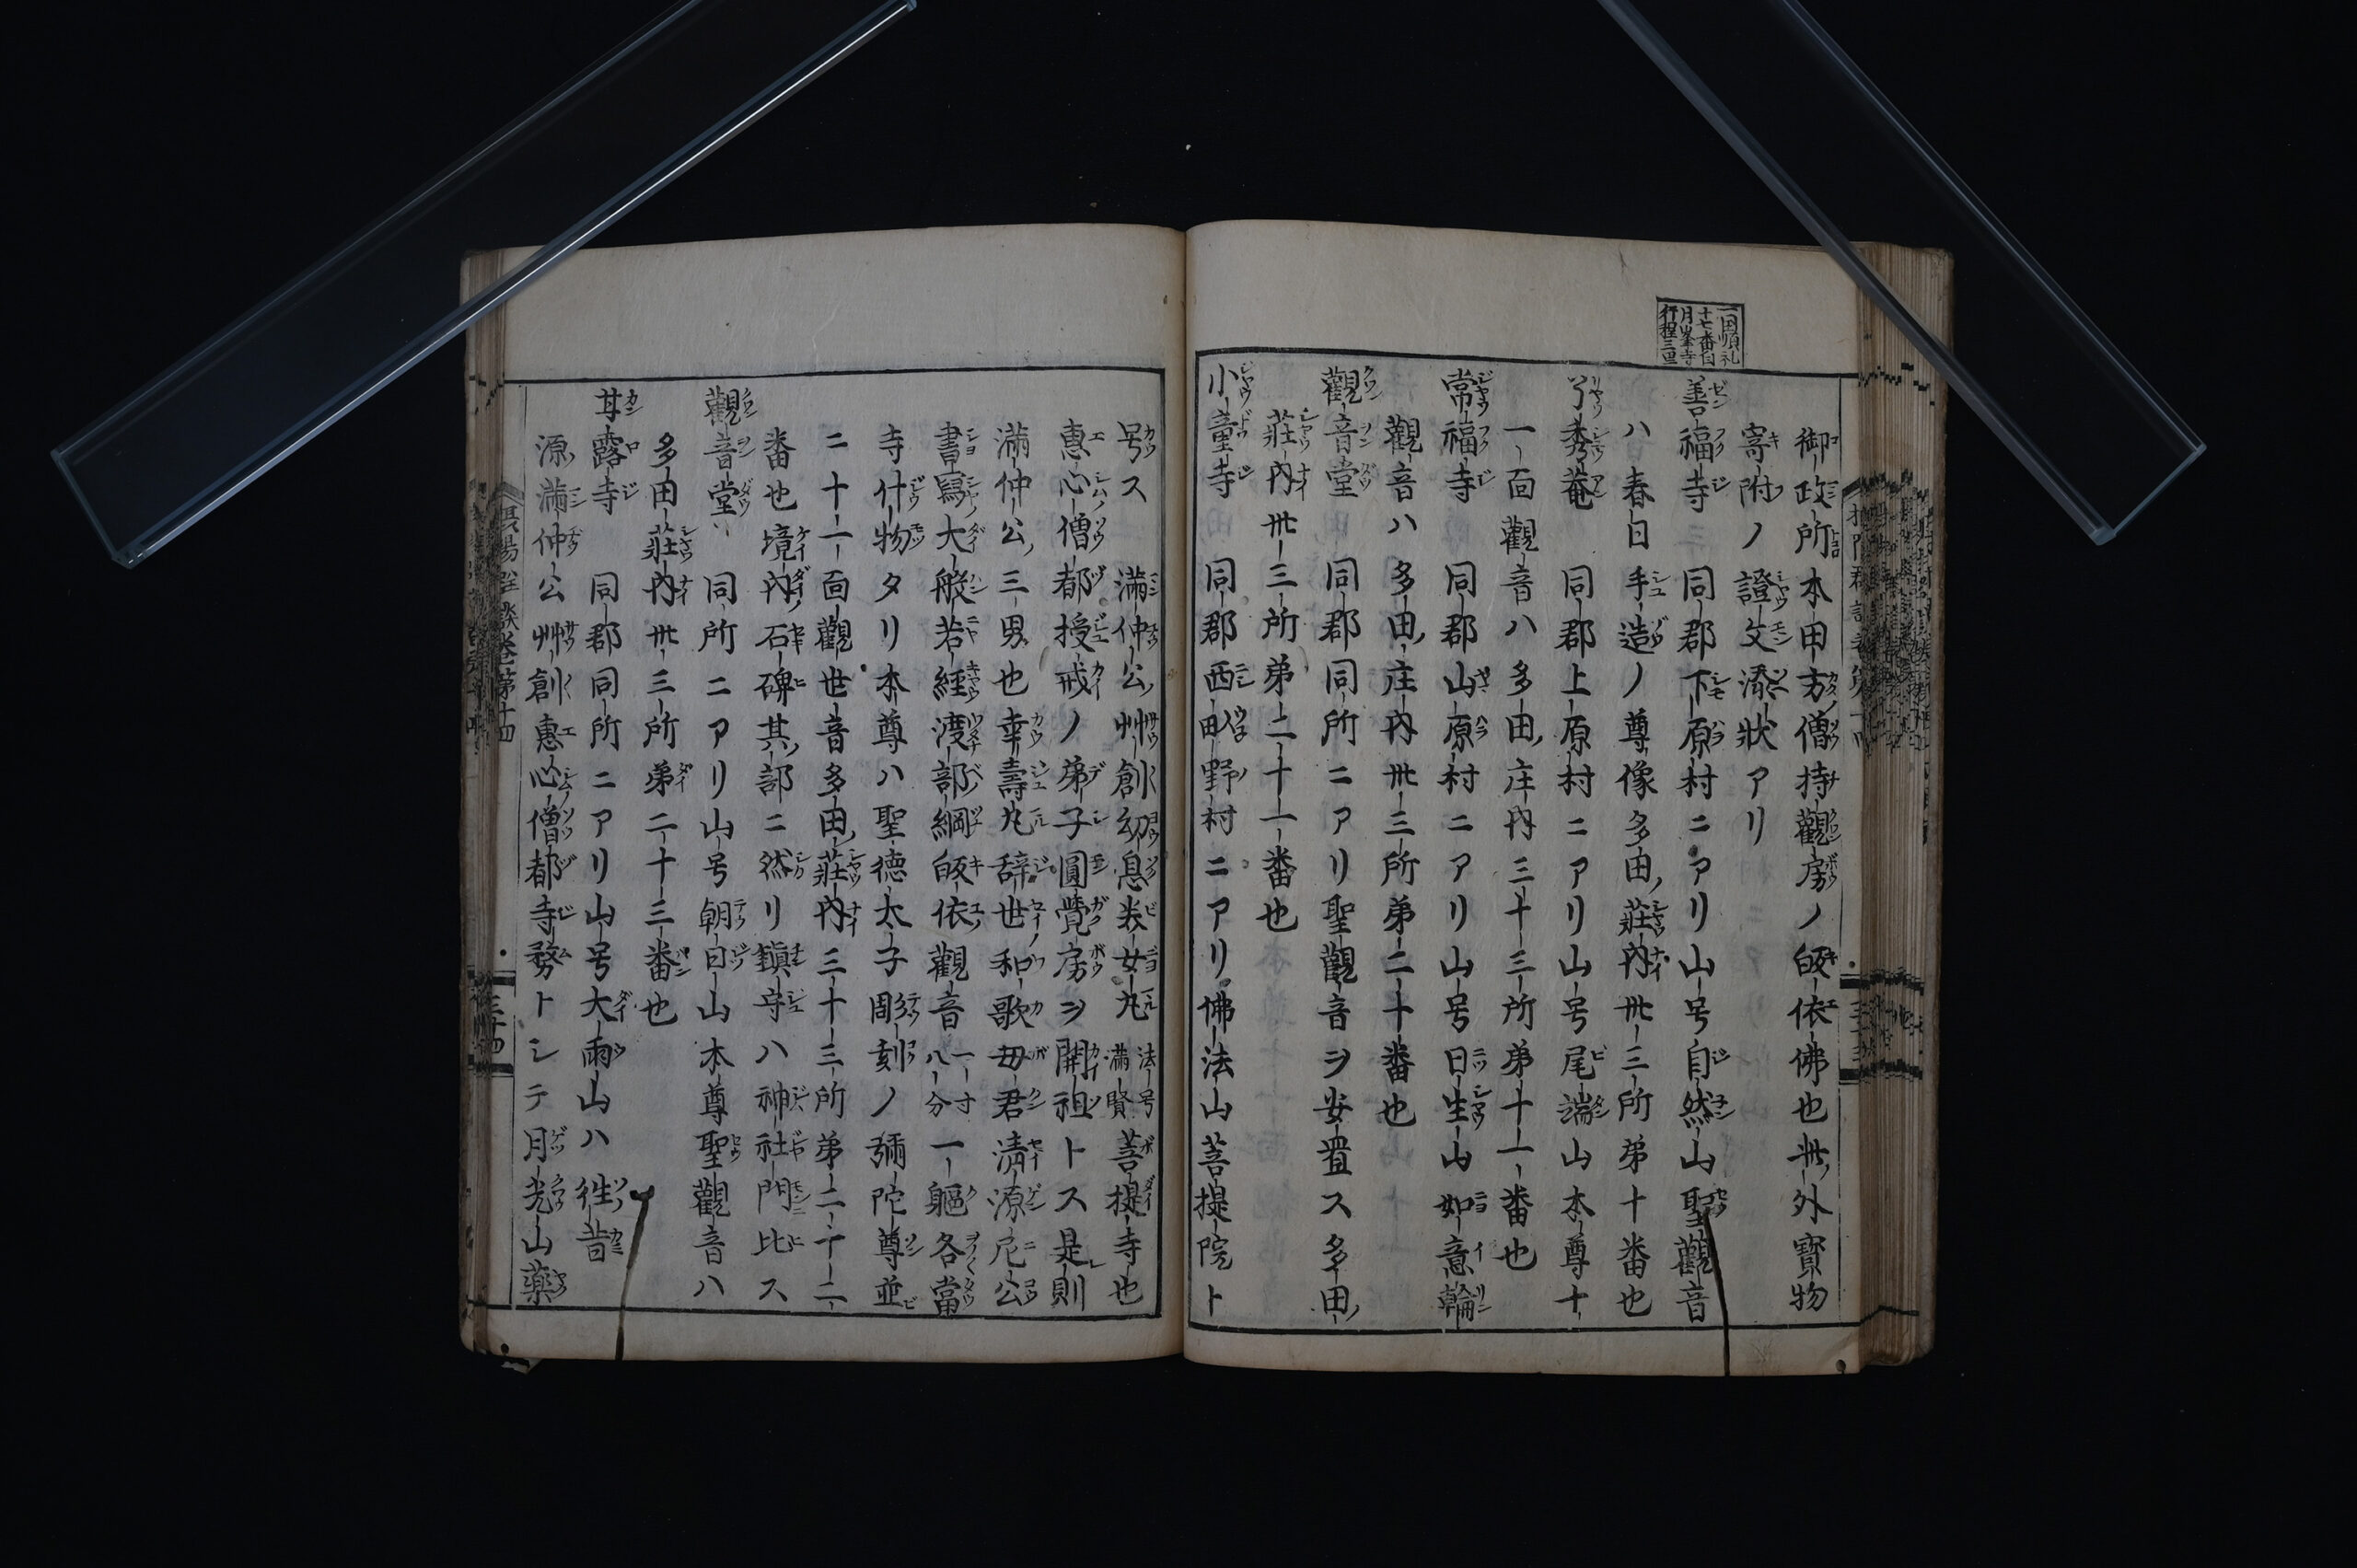 一国順礼
十七番自
月峯寺
行程三里
御政所本田方僧持觀房ノ皈依佛也此外寳物
寄附ノ證文添狀アリ
善福寺 同郡下原村ニアリ山号自然山聖觀音
ハ春日手造ノ尊像多田莊內卅三所弟十番也
了秀菴 同郡上原村ニアリ山号尾端山本尊十
一面觀音ハ多田庄内三十三所弟十一番也
常福寺 同郡山原村ニアリ山号日生山如意輪
觀音ハ多田庄内卅三所弟二十番也
觀音堂 同郡同所ニアリ聖觀音ヲ安置ス多田
莊內卅三所弟二十一番也
小童寺 同郡西畝野村ニアリ佛法山菩提院ト
号ス 滿仲公艸創幻息美女丸法号滿賢菩提寺也
惠心僧都授戒ノ弟子圓覺房ヲ開祖トス是則
滿仲公三男也幸壽丸辞世和歌母君淸源尼公
書寫大般若經渡部綱皈依觀音一寸八分一軀各當
寺什物タリ本尊ハ聖德太子彫刻ノ彌陀尊並
ニ十一面觀世音多田莊內三十三所弟二十二
番也境內石碑其部ニ然リ鎭守ハ神社門比ス
觀音堂 同所ニアリ山号朝日山本尊聖觀音ハ
多田莊內卅三所弟二十三番也
甘露寺 同郡同所ニアリ山号大雨山ハ徃昔
源滿仲公艸創惠心僧都寺務トシテ月光山藥
攝陽群談卷第十四
三十四